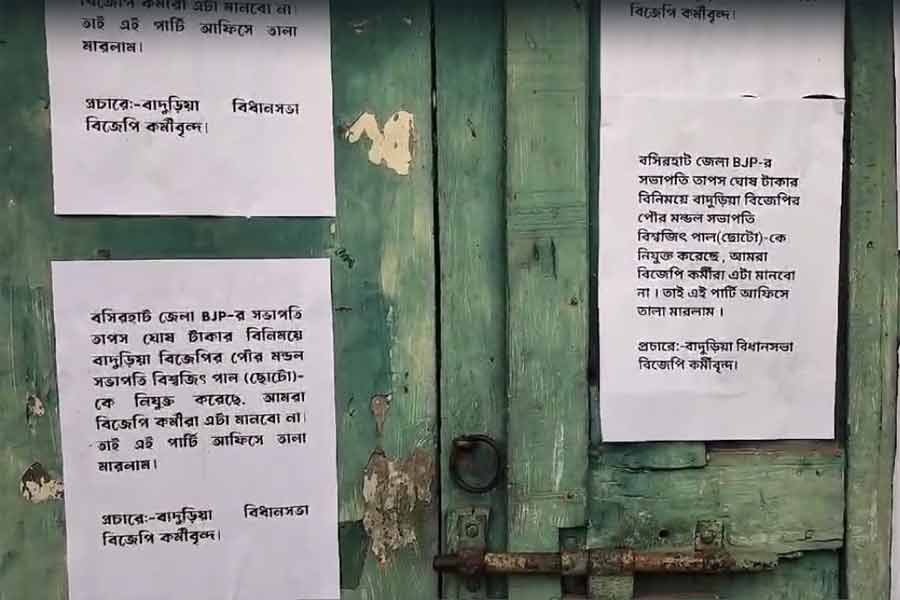 বিজেপি কর্মীরা এটা মানবো না।
তাই এই পার্টি আফিসে তালা
মারলাম।
প্রচারে:-বাদুড়িয়া বিধানসভা
বিজেপি কর্মীবৃন্দ।
বসিরহাট জেলা BJP-র সভাপতি
তাপস ঘোষ টাকার বিনিময়ে
বাদুড়িয়া বিজেপির পৌর মন্ডল
সভাপতি বিশ্বজিৎ পাল (ছোটো)-
কে নিযুক্ত করেছে. আমরা
বিজেপি কর্মীরা এটা মানবো না।
তাই এই পার্টি আফিসে তালা
মারলাম।
প্রচারে:-বাদুড়িয়া বিধানসভা
বিজেপি কর্মীবৃন্দ।
বিজেপি কর্মীবৃন্দ।
বসিরহাট জেলা BJP-র
সভাপতি তাপস ঘোষ টাকার
বিনিময়ে বাদুড়িয়া বিজেপির
পৌর মন্ডল সভাপতি
বিশ্বজিৎ পাল(ছোটো)-কে
নিযুক্ত করেছে , আমরা
বিজেপি কর্মীরা এটা মানবো
না । তাই এই পার্টি আফিসে
তালা মারলাম ।
প্রচারে:-বাদুড়িয়া বিধানসভা
বিজেপি কর্মীবৃন্দ।